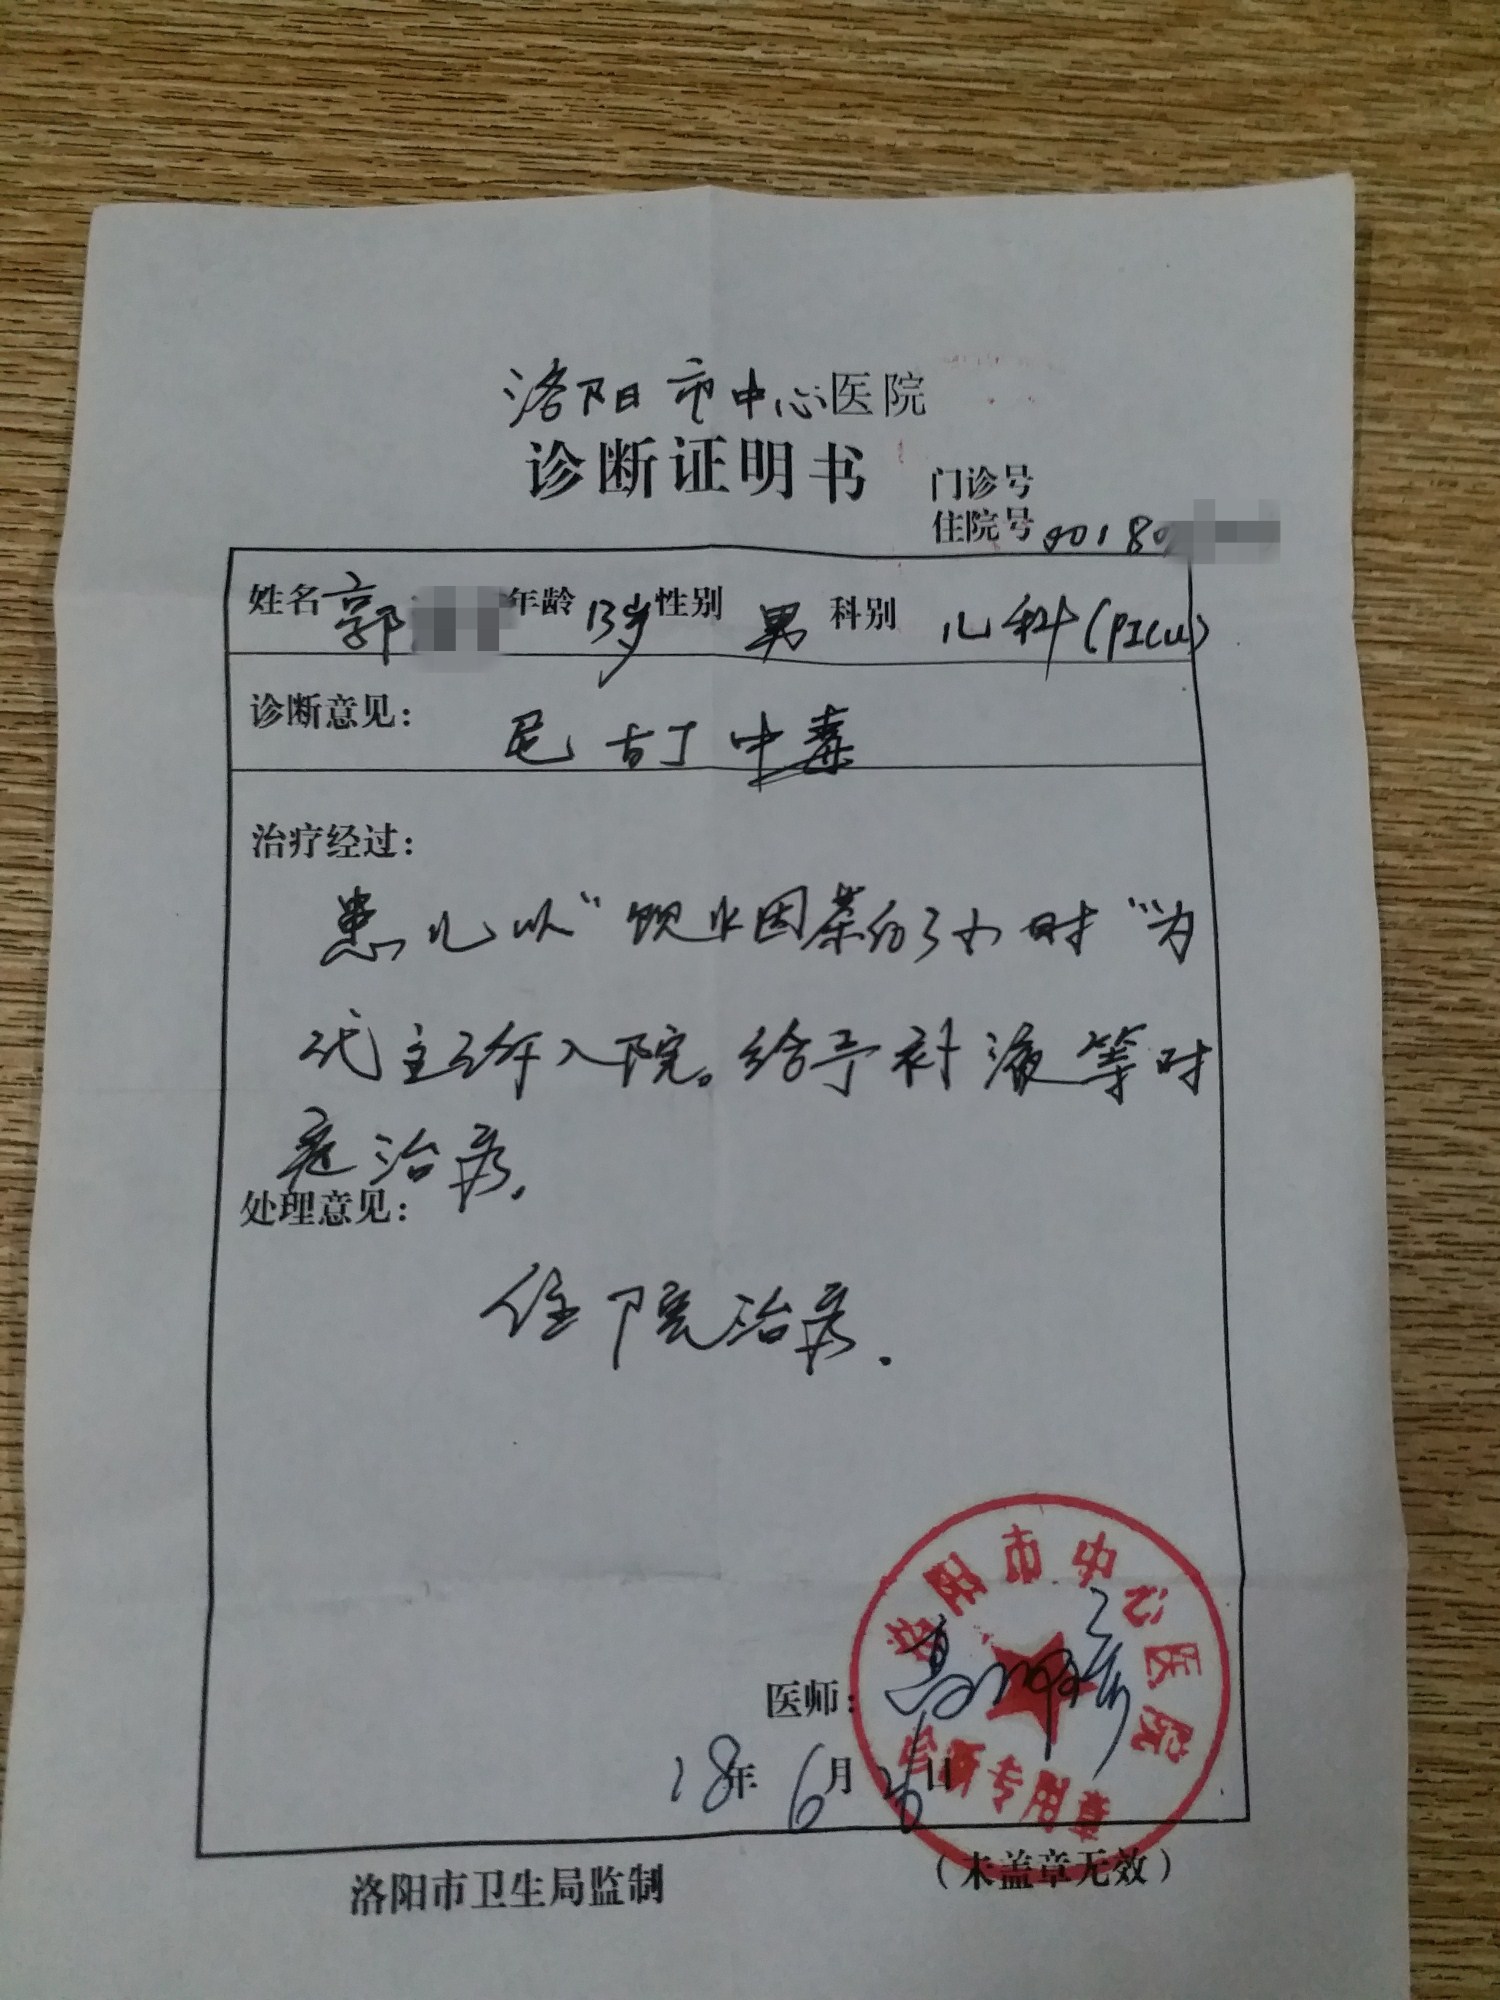 洛阳市中心医院
诊断证明书
门诊号
住院号 00180
姓名 郭 年龄 13岁 性别 男 科别 儿科(PICU)
诊断意见：
尼古丁中毒
治疗经过：
患儿以“饮水因茶的3小时”为
代主诉入院。给予补液等对
症治疗.
处理意见：
住院治疗.
洛阳市中心医院
诊断专用章
医师：
18年 6月 26日
洛阳市卫生局监制
（未盖章无效）